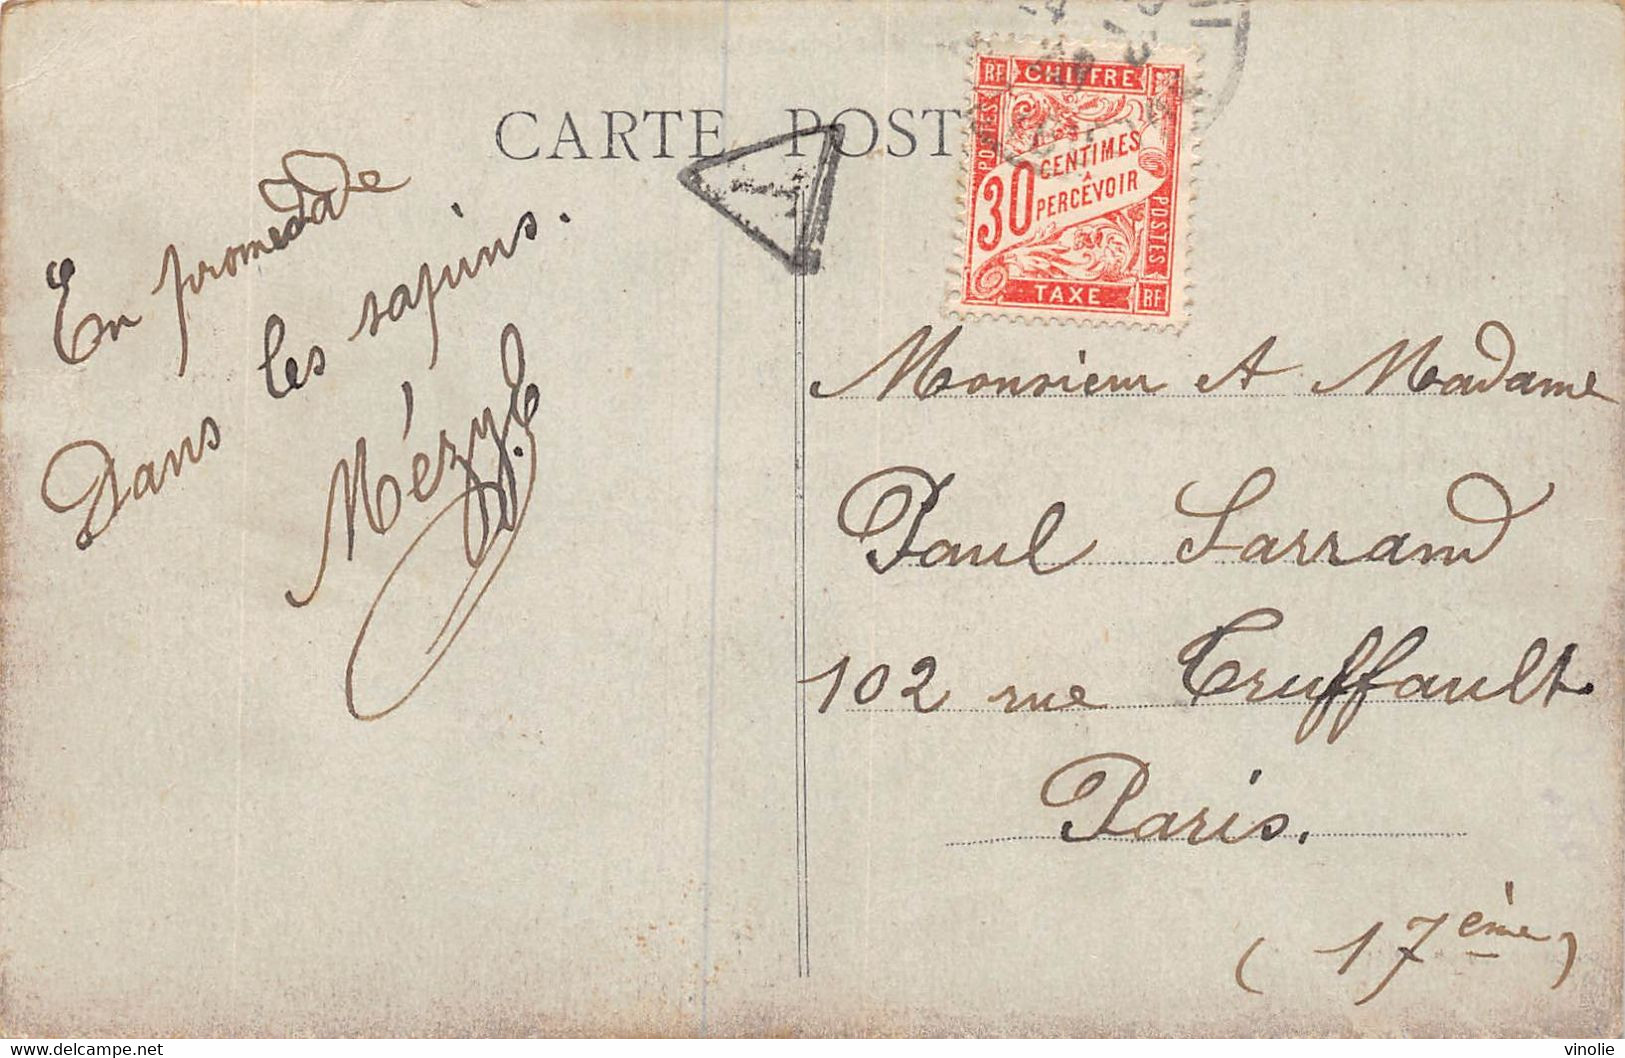 CARTE POST
RF CHIFFRE
POSTES
30 CENTIMES
A
PERCEVOIR
POSTES
TAXE RF
T
En promenade
Dans les sapins.
Monsieur et Madame
Paul Sarrand
102 rue Truffault
Paris.
(17ème)
delcampe.net
vinolie